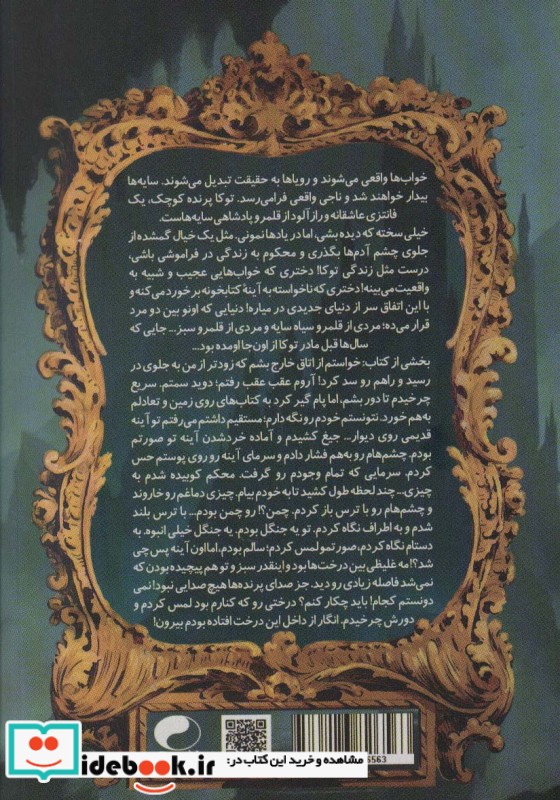 خواب‌ها واقعی می‌شوند و رویاها به حقیقت تبدیل می‌شوند. سایه‌ها
بیدار خواهند شد و ناجی واقعی فرامی‌رسد. توکا پرنده کوچک، یک
فانتزی عاشقانه و رازآلود از قلمرو پادشاهی سایه‌هاست.
خیلی سخته که دیده بشی، اما در یادها نمونی. مثل یک خیال گمشده از
جلوی چشم آدم‌ها بگذری و محکوم به زندگی در فراموشی باشی،
درست مثل زندگی توکا! دختری که خواب‌هایی عجیب و شبیه به
واقعیت می‌بینه! دختری که ناخواسته به آینهٔ کتابخونه برخورد می‌کنه و
با این اتفاق سر از دنیای جدیدی در میاره! دنیایی که اونو بین دو مرد
قرار می‌ده؛ مردی از قلمرو سیاه سایه و مردی از قلمرو سبز... جایی که
سال‌ها قبل مادر توکا از اون‌جا اومده بود...
بخشی از کتاب: خواستم از اتاق خارج بشم که زودتر از من به جلوی در
رسید و راهم رو سد کرد! آروم عقب عقب رفتم؛ دوید سمتم. سریع
چرخیدم تا دور بشم، اما پام گیر کرد به کتاب‌های روی زمین و تعادلم
به‌هم خورد. نتونستم خودم رو نگه دارم؛ مستقیم داشتم می‌رفتم تو آینه
قدیمی روی دیوار... جیغ کشیدم و آماده خرد شدن آینه تو صورتم
بودم. چشم‌هام رو به‌هم فشار دادم و سرمای آینه رو روی پوستم حس
کردم. سرمایی که تمام وجودم رو گرفت. محکم کوبیده شدم به
چیزی... چند لحظه طول کشید تا به خودم بیام. چیزی دماغم رو خاروند
و چشم‌هام رو با ترس باز کردم. چمن؟! رو چمن بودم... با ترس بلند
شدم و به اطراف نگاه کردم. تو یه جنگل بودم. یه جنگل خیلی انبوه. به
دستام نگاه کردم، صورتمو لمس کردم؛ سالم بودم، اما اون آینه پس چی
شد؟! مه غلیظی بین درخت‌ها بود و اینقدر سبز و تو هم پیچیده بودن که
نمی‌شد فاصله زیادی رو دید. جز صدای پرنده‌ها هیچ صدایی نبود! نمی
دونستم کجام! باید چکار کنم؟ درختی رو که کنارم بود لمس کردم و
دورش چرخیدم. انگار از داخل این درخت افتاده بودم بیرون!
6563
مشاهده و خرید این کتاب در:
idebook.ir